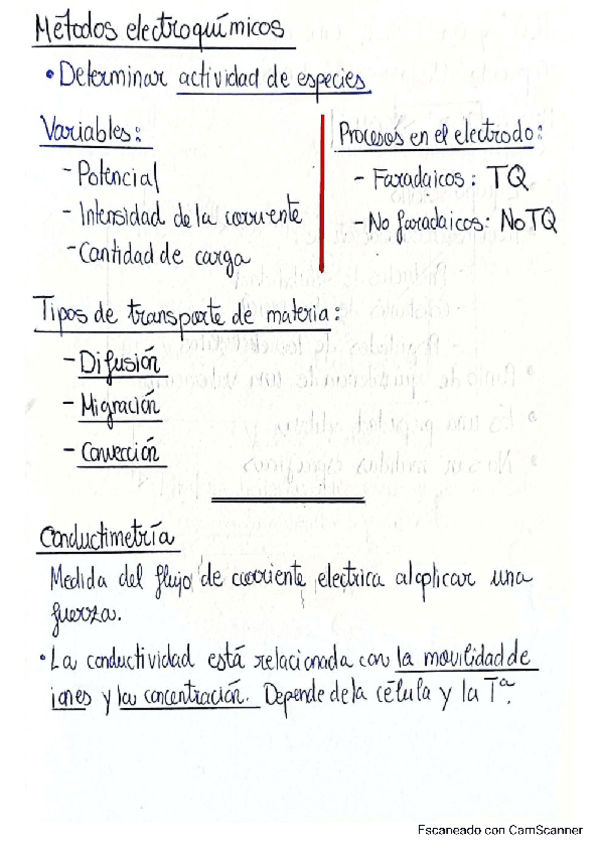 Métodos electroquímicos
• Determinar actividad de especies
Variables:
- Potencial
- Intensidad de la corriente
- Cantidad de carga
Procesos en el electrodo:
- Faradaicos: TQ
- No faradaicos: No TQ
Tipos de transporte de materia:
- Difusión
- Migración
- Convección
Conductimetría
Medida del flujo de corriente electrica al aplicar una
fuerza.
• La conductividad está relacionada con la movilidad de
iones y la concentración. Depende de la célula y la Tª.
Escaneado con CamScanner